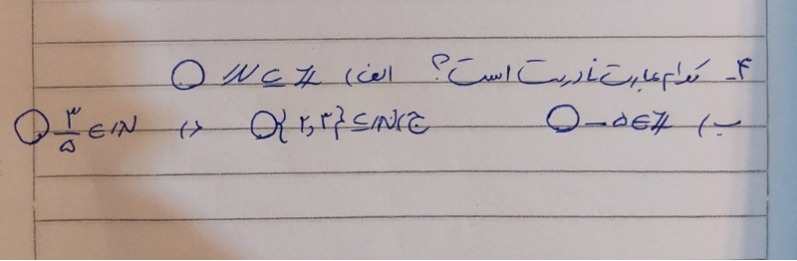 ۴ـ کدام عبارت نادرست است؟ الف) N ⊆ Z ○
ب) −۵ ∈ Z ○ ج) {۲,۳} ⊆ N ○ د) ۳/۵ ∈ N ○